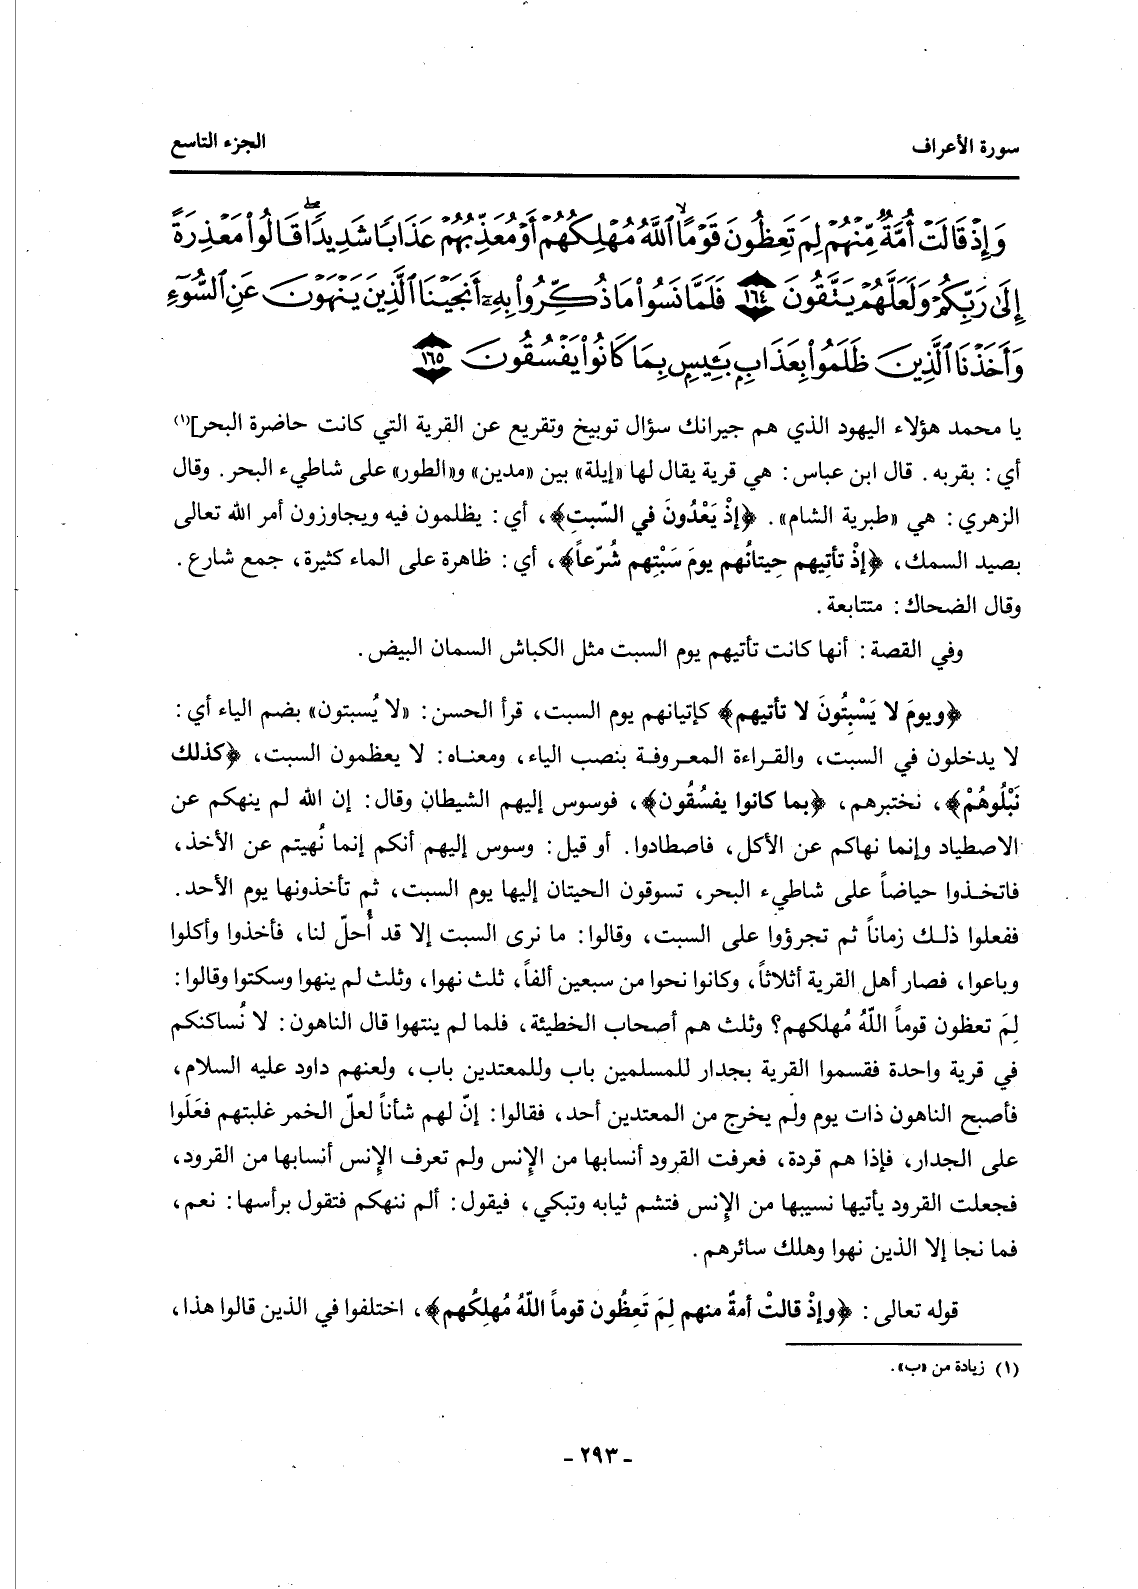 سورة الأعراف
الجزء التاسع
وَإِذْ قَالَتْ أُمَّةٌ مِّنْهُمْ لِمَ تَعِظُونَ قَوْمًا ۙ اللَّهُ مُهْلِكُهُمْ أَوْ مُعَذِّبُهُمْ عَذَابًا شَدِيدًا ۖ قَالُوا مَعْذِرَةً
إِلَىٰ رَبِّكُمْ وَلَعَلَّهُمْ يَتَّقُونَ ١٦٤ فَلَمَّا نَسُوا مَا ذُكِّرُوا بِهِ أَنجَيْنَا الَّذِينَ يَنْهَوْنَ عَنِ السُّوءِ
وَأَخَذْنَا الَّذِينَ ظَلَمُوا بِعَذَابٍ بَئِيسٍ بِمَا كَانُوا يَفْسُقُونَ ١٦٥
يا محمد هؤلاء اليهود الذي هم جيرانك سؤال توبيخ وتقريع عن القرية التي كانت حاضرة البحر](١)
أي: بقربه. قال ابن عباس: هي قرية يقال لها «إيلة» بين «مدين» و«الطور» على شاطيء البحر. وقال
الزهري: هي «طبرية الشام». ﴿إذْ يَعْدُونَ في السّبتِ﴾، أي: يظلمون فيه ويجاوزون أمر الله تعالى
بصيد السمك، ﴿إذْ تأتِيهم حِيتانُهم يومَ سَبْتِهم شُرّعاً﴾، أي: ظاهرة على الماء كثيرة، جمع شارع.
وقال الضحاك: متتابعة.
وفي القصة: أنها كانت تأتيهم يوم السبت مثل الكباش السمان البيض.
﴿ويومَ لا يَسْبِتُونَ لا تأتيهم﴾ كإتيانهم يوم السبت، قرأ الحسن: «لا يُسبتون» بضم الياء أي:
لا يدخلون في السبت، والقراءة المعروفة بنصب الياء، ومعناه: لا يعظمون السبت، ﴿كذلك
نَبْلُوهُمْ﴾، نختبرهم، ﴿بما كانوا يفسُقُون﴾، فوسوس إليهم الشيطان وقال: إن الله لم ينهكم عن
الاصطياد وإنما نهاكم عن الأكل، فاصطادوا. أو قيل: وسوس إليهم أنكم إنما نُهيتم عن الأخذ،
فاتخذوا حياضاً على شاطيء البحر، تسوقون الحيتان إليها يوم السبت، ثم تأخذونها يوم الأحد.
ففعلوا ذلك زماناً ثم تجرؤوا على السبت، وقالوا: ما نرى السبت إلا قد أُحلّ لنا، فأخذوا وأكلوا
وباعوا، فصار أهل القرية أثلاثاً، وكانوا نحوا من سبعين ألفاً، ثلث نهوا، وثلث لم ينهوا وسكتوا وقالوا:
لِمَ تعظون قوماً اللّهُ مُهلكهم؟ وثلث هم أصحاب الخطيئة، فلما لم ينتهوا قال الناهون: لا نُساكنكم
في قرية واحدة فقسموا القرية بجدار للمسلمين باب وللمعتدين باب، ولعنهم داود عليه السلام،
فأصبح الناهون ذات يوم ولم يخرج من المعتدين أحد، فقالوا: إنّ لهم شأناً لعلّ الخمر غلبتهم فعَلَوا
على الجدار، فإذا هم قردة، فعرفت القرود أنسابها من الإنس ولم تعرف الإنس أنسابها من القرود،
فجعلت القرود يأتيها نسيبها من الإنس فتشم ثيابه وتبكي، فيقول: ألم ننهكم فتقول برأسها: نعم،
فما نجا إلا الذين نهوا وهلك سائرهم.
قوله تعالى: ﴿وإذْ قالتْ أمةٌ منهم لِمَ تَعِظُون قوماً اللّهُ مُهلِكُهم﴾، اختلفوا في الذين قالوا هذا،
(١) زيادة من «ب».
- ٢٩٣ -